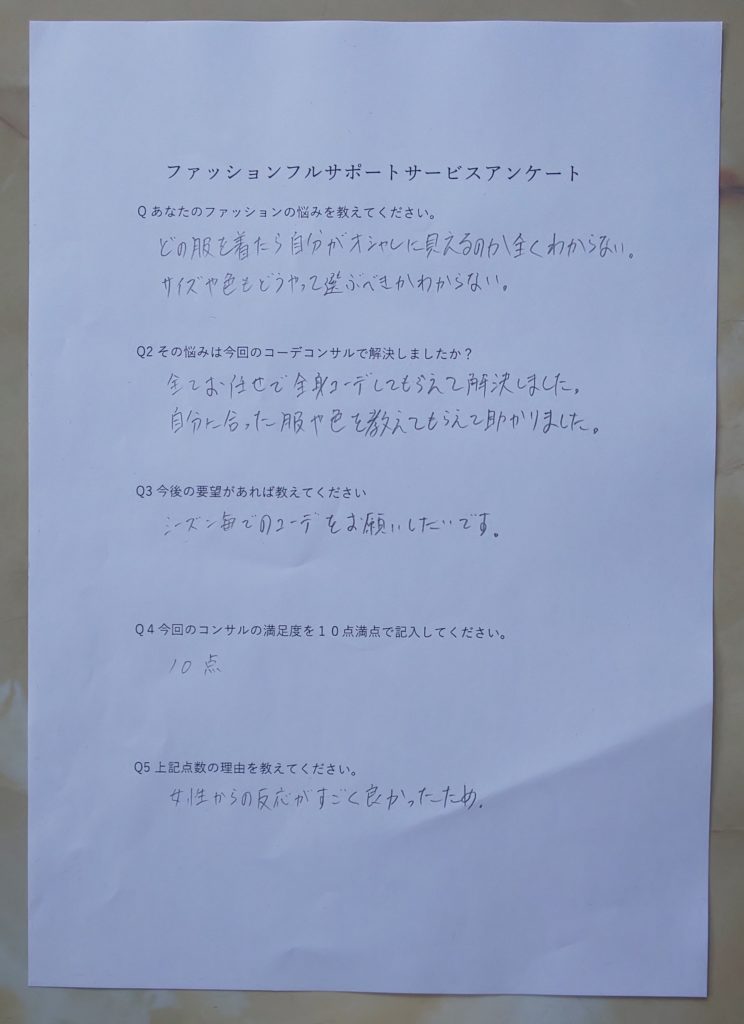 ファッションフルサポートサービスアンケート
Q あなたのファッションの悩みを教えてください。
どの服を着たら自分がオシャレに見えるのか全くわからない。
サイズや色もどうやって選ぶべきかわからない。
Q2 その悩みは今回のコーデコンサルで解決しましたか？
全てお任せで全身コーデしてもらえて解決しました。
自分に合った服や色を教えてもらえて助かりました。
Q3 今後の要望があれば教えてください
シーズン毎でのコーデをお願いしたいです。
Q４今回のコンサルの満足度を１０点満点で記入してください。
10点
Q5 上記点数の理由を教えてください。
女性からの反応がすごく良かったため。